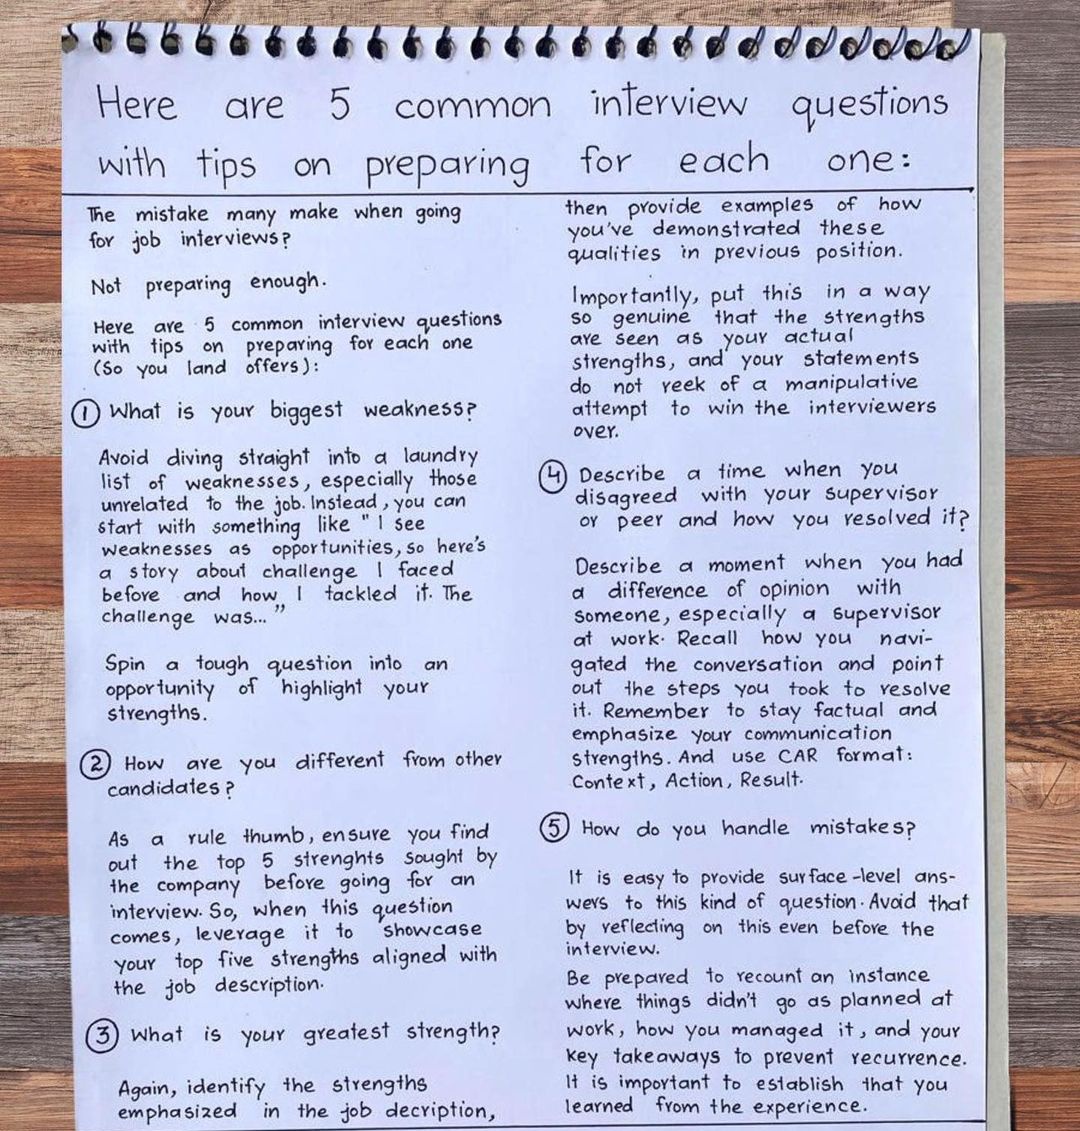 Here are 5 common interview questions
with tips on preparing for each one:
The mistake many make when going
for job interviews?
Not preparing enough.
Here are 5 common interview questions
with tips on preparing for each one
(So you land offers):
1 What is your biggest weakness?
Avoid diving straight into a laundry
list of weaknesses, especially those
unrelated to the job. Instead, you can
start with something like "I see
weaknesses as opportunities, so here's
a story about challenge I faced
before and how I tackled it. The
challenge was..."
Spin a tough question into an
opportunity of highlight your
strengths.
2 How are you different from other
candidates?
As a rule thumb, ensure you find
out the top 5 strenghts sought by
the company before going for an
interview. So, when this question
comes, leverage it to showcase
your top five strengths aligned with
the job description.
3 What is your greatest strength?
Again, identify the strengths
emphasized in the job decription,
then provide examples of how
you've demonstrated these
qualities in previous position.
Importantly, put this in a way
so genuine that the strengths
are seen as your actual
strengths, and your statements
do not reek of a manipulative
attempt to win the interviewers
over.
4 Describe a time when you
disagreed with your supervisor
or peer and how you resolved it?
Describe a moment when you had
a difference of opinion with
someone, especially a supervisor
at work. Recall how you navi-
gated the conversation and point
out the steps you took to resolve
it. Remember to stay factual and
emphasize your communication
strengths. And use CAR format:
Context, Action, Result.
5 How do you handle mistakes?
It is easy to provide surface-level ans-
wers to this kind of question. Avoid that
by reflecting on this even before the
interview.
Be prepared to recount an instance
where things didn't go as planned at
work, how you managed it, and your
key takeaways to prevent recurrence.
It is important to establish that you
learned from the experience.